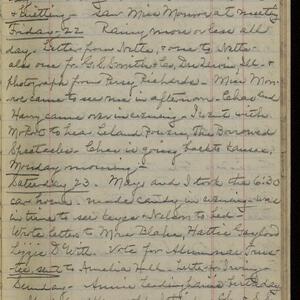 & Knitting - Saw Miss Monroe at meeting
Friday - 22 Rainy more or less all
day. Letter from Ivetta, & one to Ivetta -
also one for G. C. Smith & Co,
photograph from Percy Richards - Miss Mon-
roe came to see me in afternoon - Chas. and
Harry came over in evening - I went with
to hear Leland Powers, the Borrowed
Spectacles - Chas is going back to
Monday morning -
Saturday 23. May and I took the 6:30
car home. - made candy in evening - was
in time to see Keyes & Nelson to bed -
Wrote letters to Mrs Blake, Hattie Gaylord
Lizzie D. With. Vote for Alumnae Trus-
tee sent to Amelia Hall. Letter for Irving -
Sunday - Annie Birthday